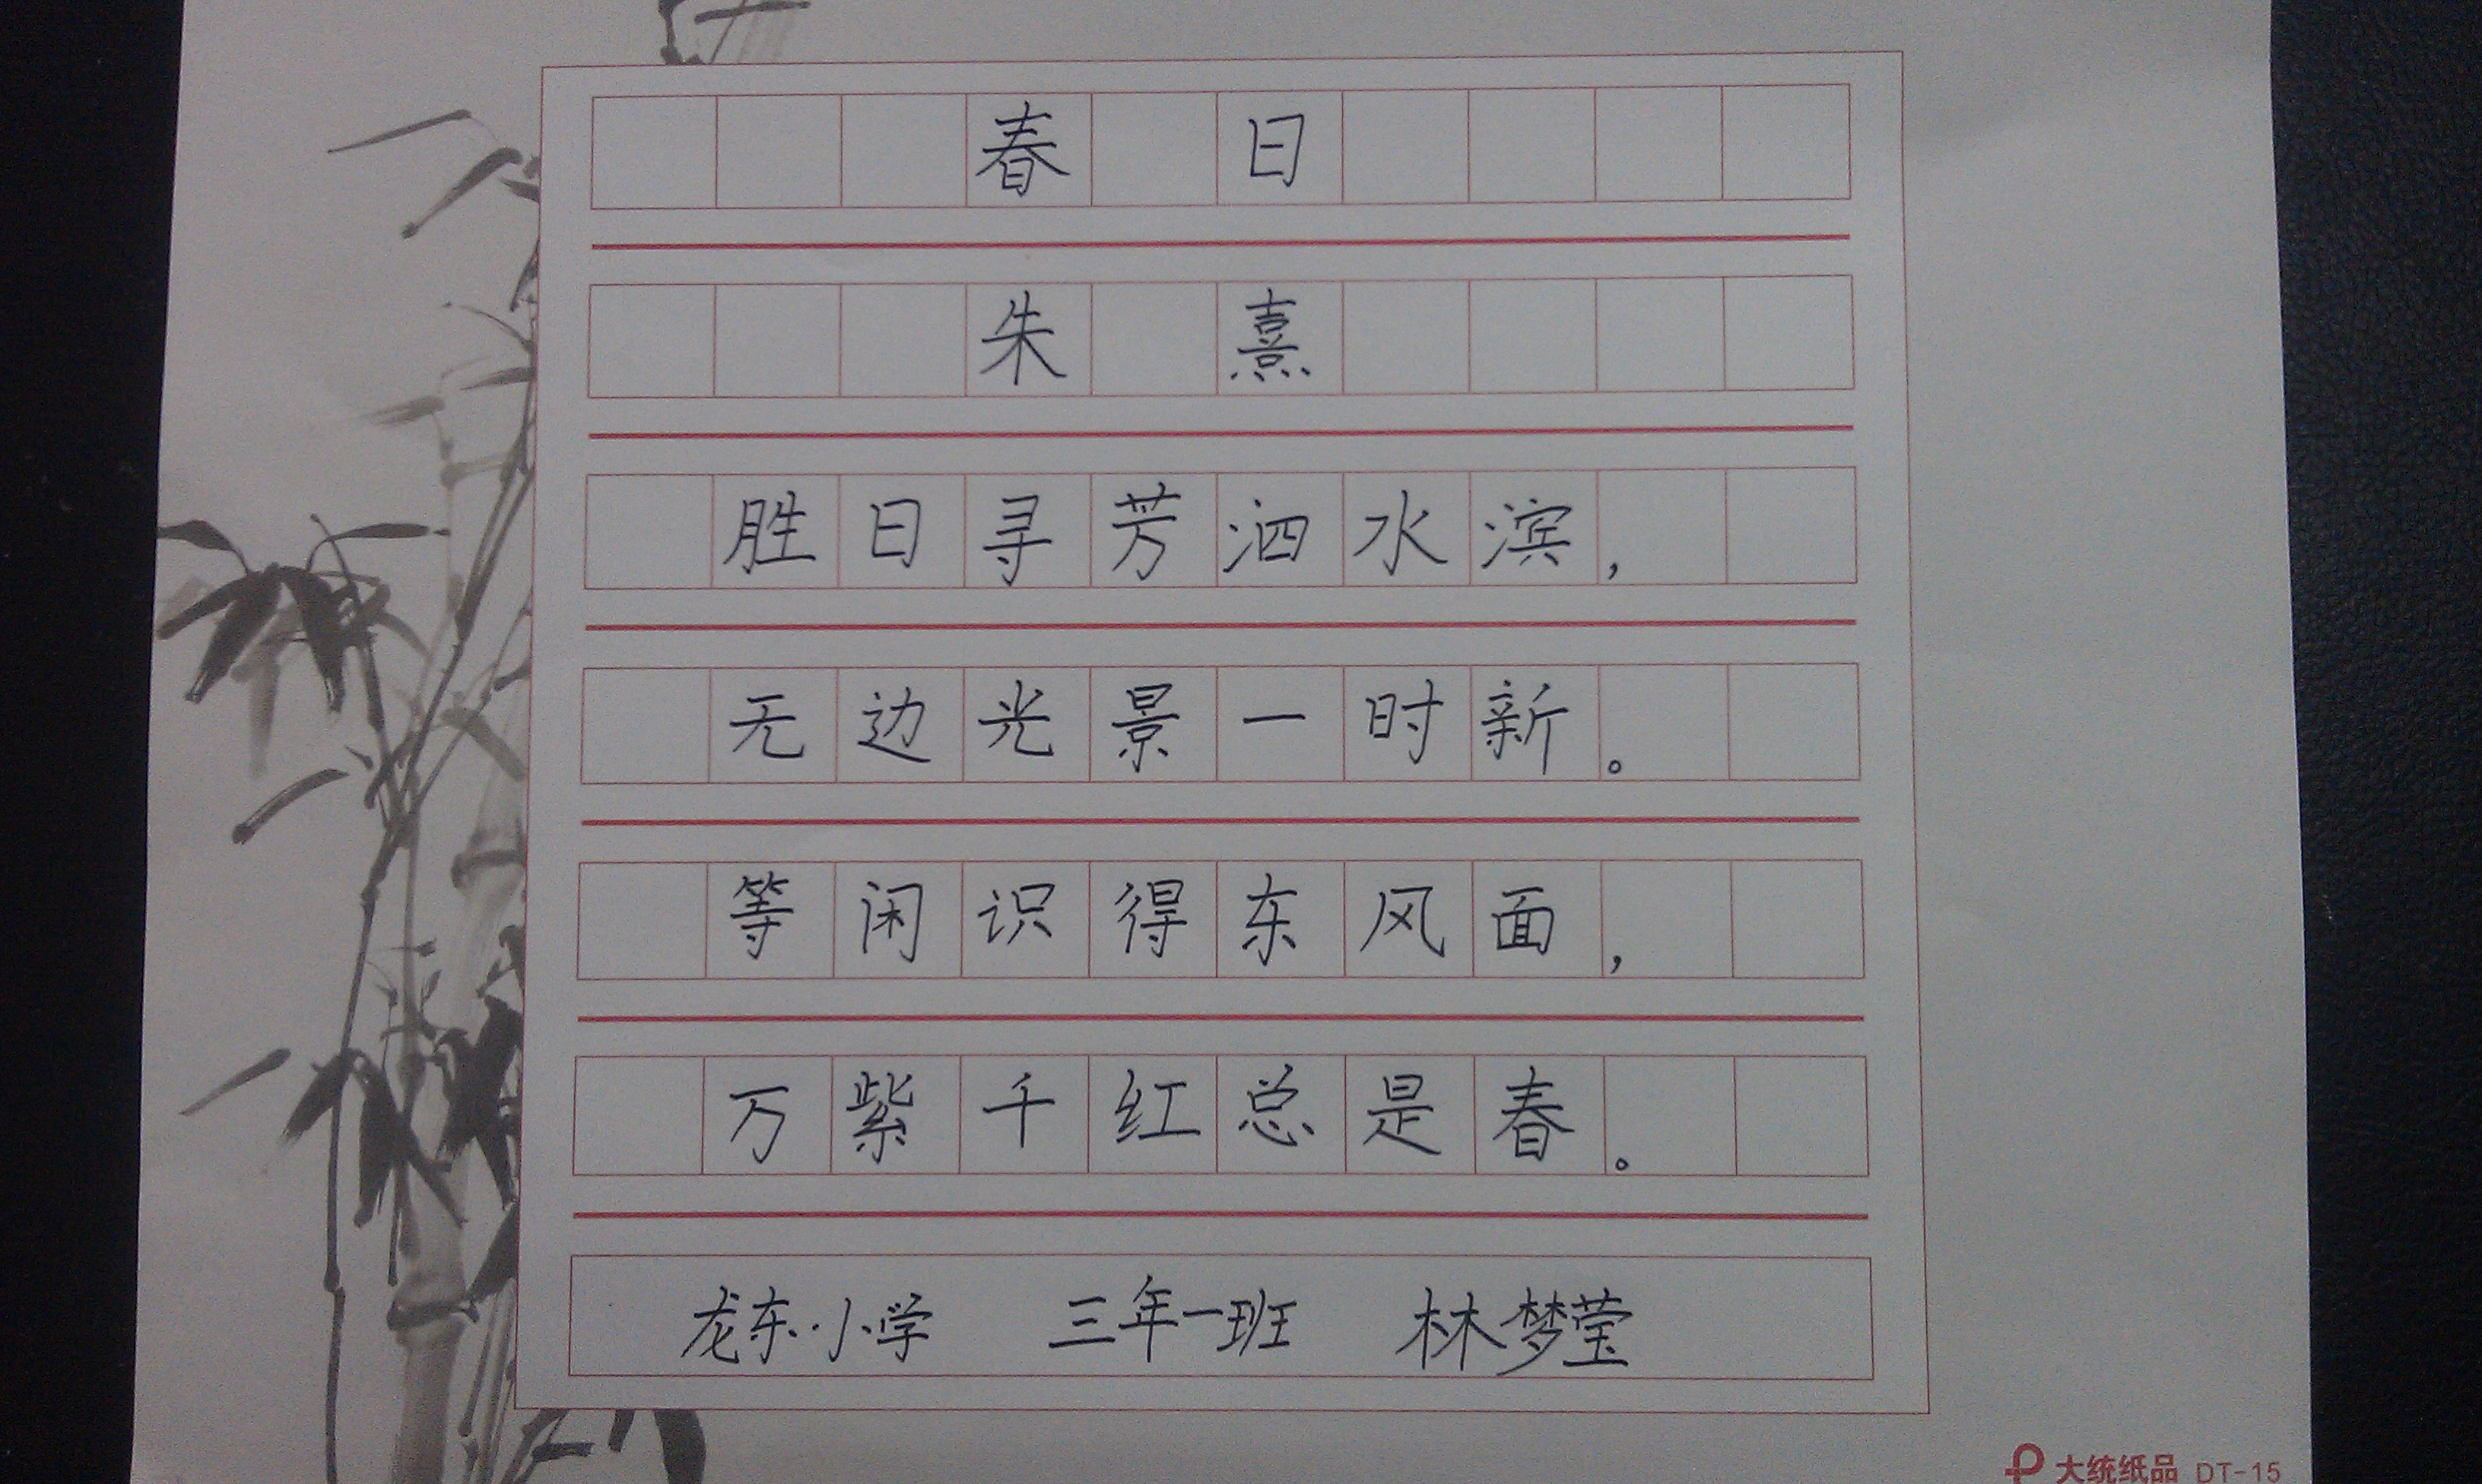 春日
朱熹
胜日寻芳泗水滨，
无边光景一时新。
等闲识得东风面，
万紫千红总是春。
龙东小学 三年一班 林梦莹
大统纸品 DT-15